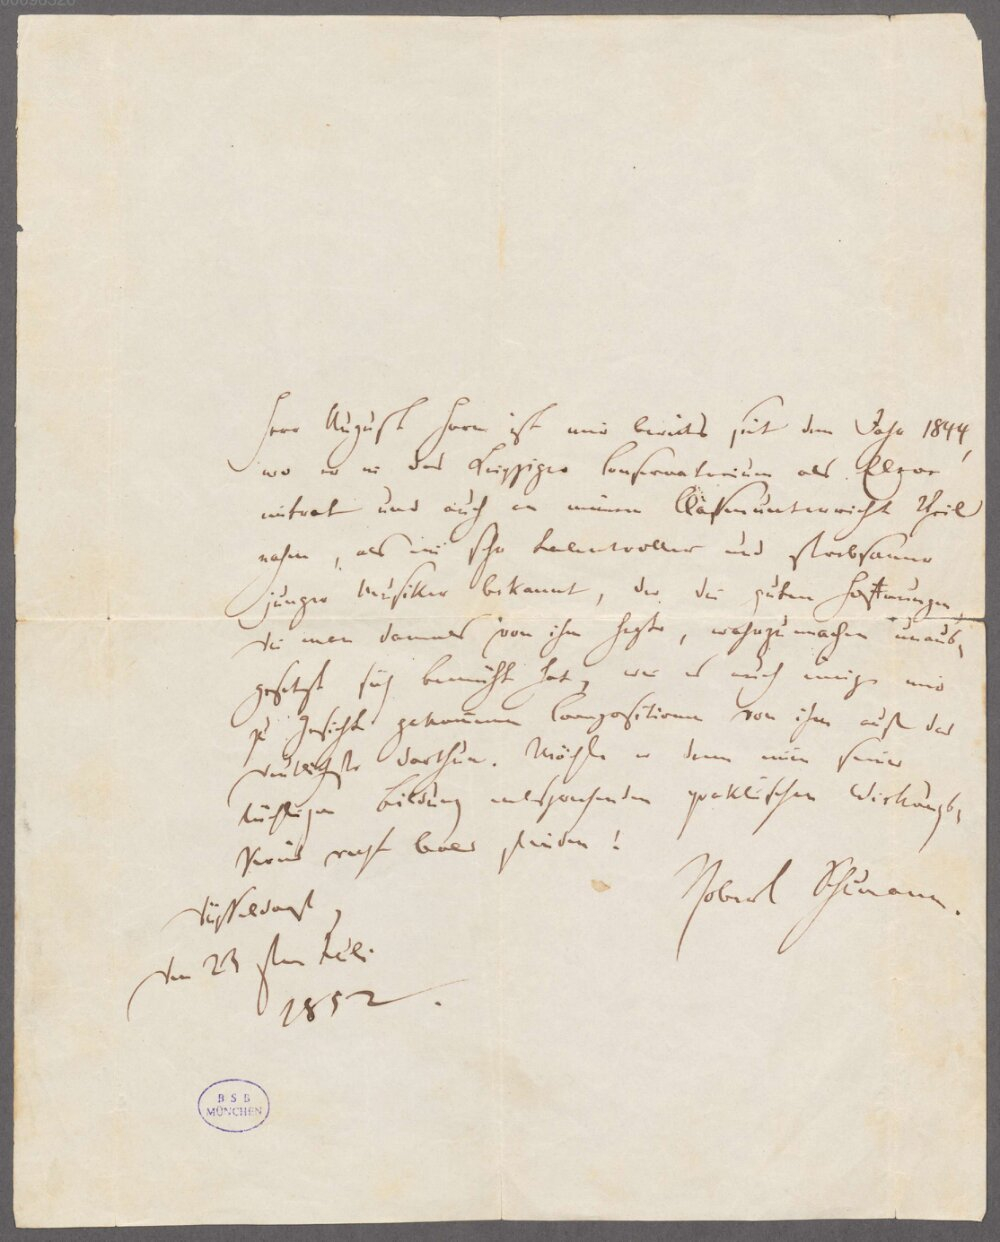 Herr August Horn ist mir bereits seit dem Jahr 1844,
wo er in das Leipziger Conservatorium als Eleve
eintrat und auch an meinem Classenunterricht Theil
nahm, als ein sehr talentvoller und strebsamer
junger Musiker bekannt, der die guten Hoffnungen,
die man damals von ihm hegte, wahrzumachen unaus-
gesetzt sich bemüht hat, wie es auch einige mir
zu Gesicht gekommene Compositionen von ihm auf das
deutlichste darthun. Möchte er denn einen seiner
tüchtigen Bildung entsprechenden praktischen Wirkungs-
kreis recht bald finden!
Robert Schumann.
Düsseldorf,
den 23sten Juli
1852.
B S B
MÜNCHEN